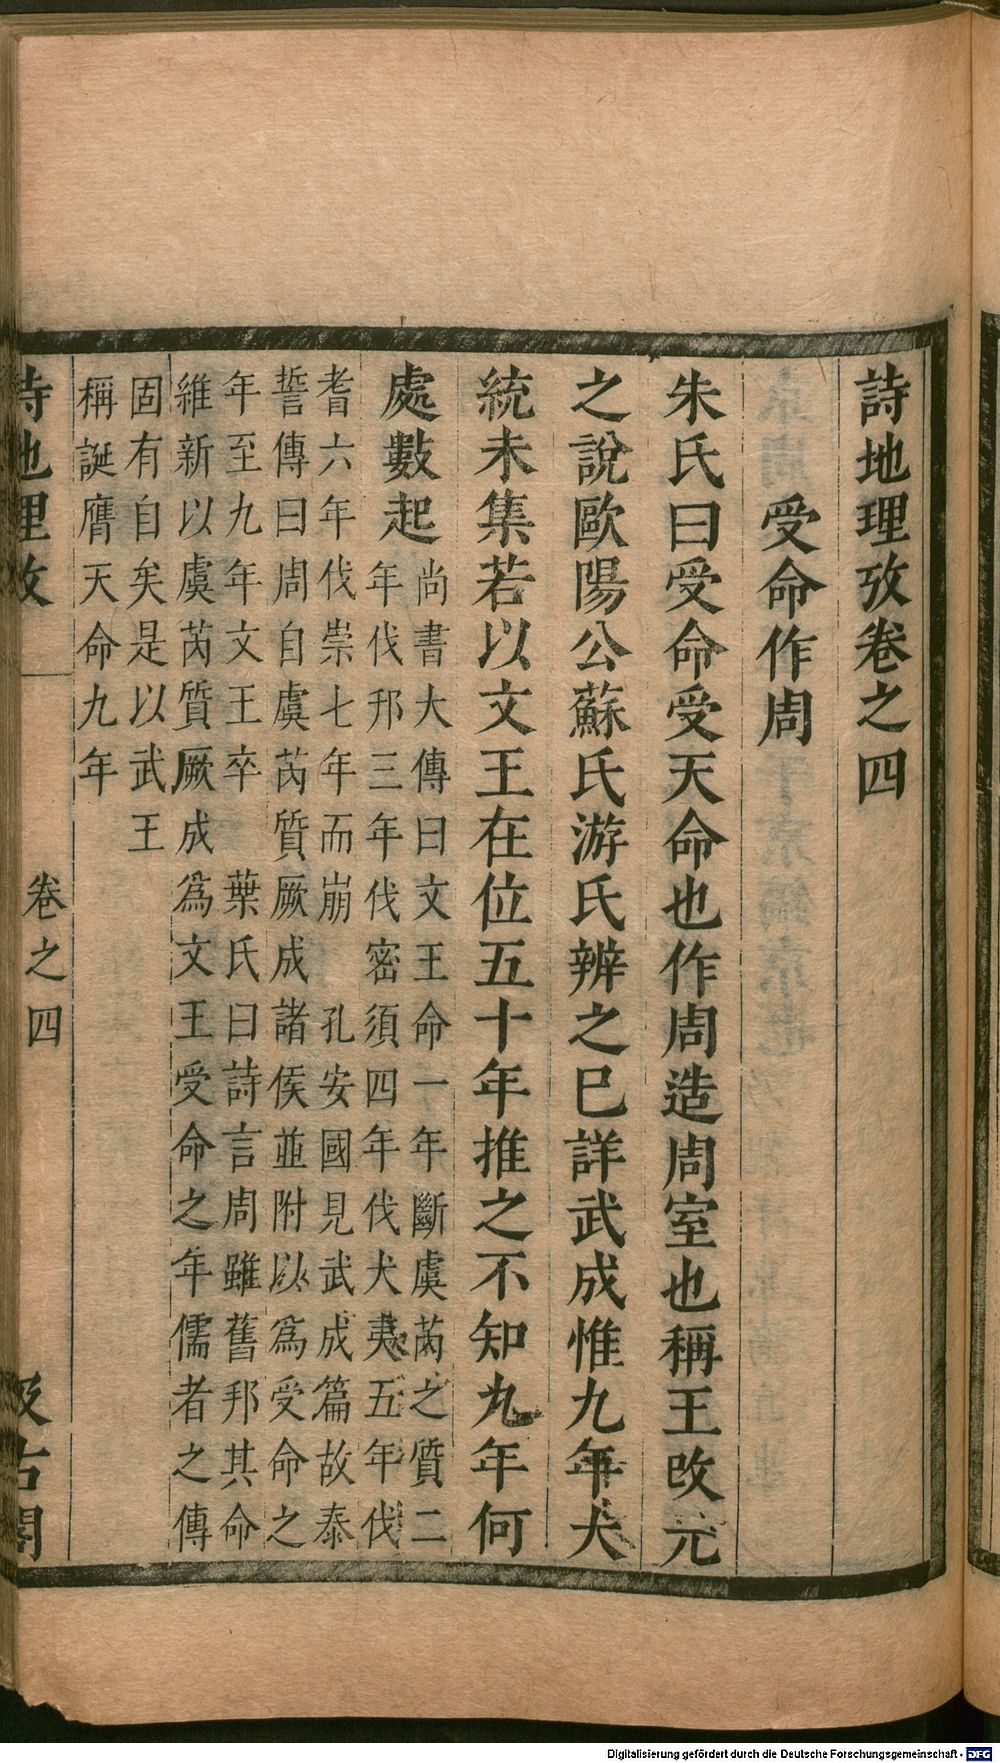 詩地理攷卷之四
受命作周
朱氏曰受命受天命也作周造周室也稱王改元
之說歐陽公蘇氏游氏辨之已詳武成惟九年大
統未集若以文王在位五十年推之不知九年何
處數起
尚書大傳曰文王命一年斷虞芮之質二
年伐邘三年伐密須四年伐犬夷五年伐
耆六年伐崇七年而崩　孔安國見武成篇故泰
誓傳曰周自虞芮質厥成諸侯並附以爲受命之
年至九年文王卒　葉氏曰詩言周雖舊邦其命
維新以虞芮質厥成爲文王受命之年儒者之傳
固有自矣是以武王
稱誕膺天命九年
詩地理攷
卷之四
汲古閣
Digitalisierung gefördert durch die Deutsche Forschungsgemeinschaft - DFG